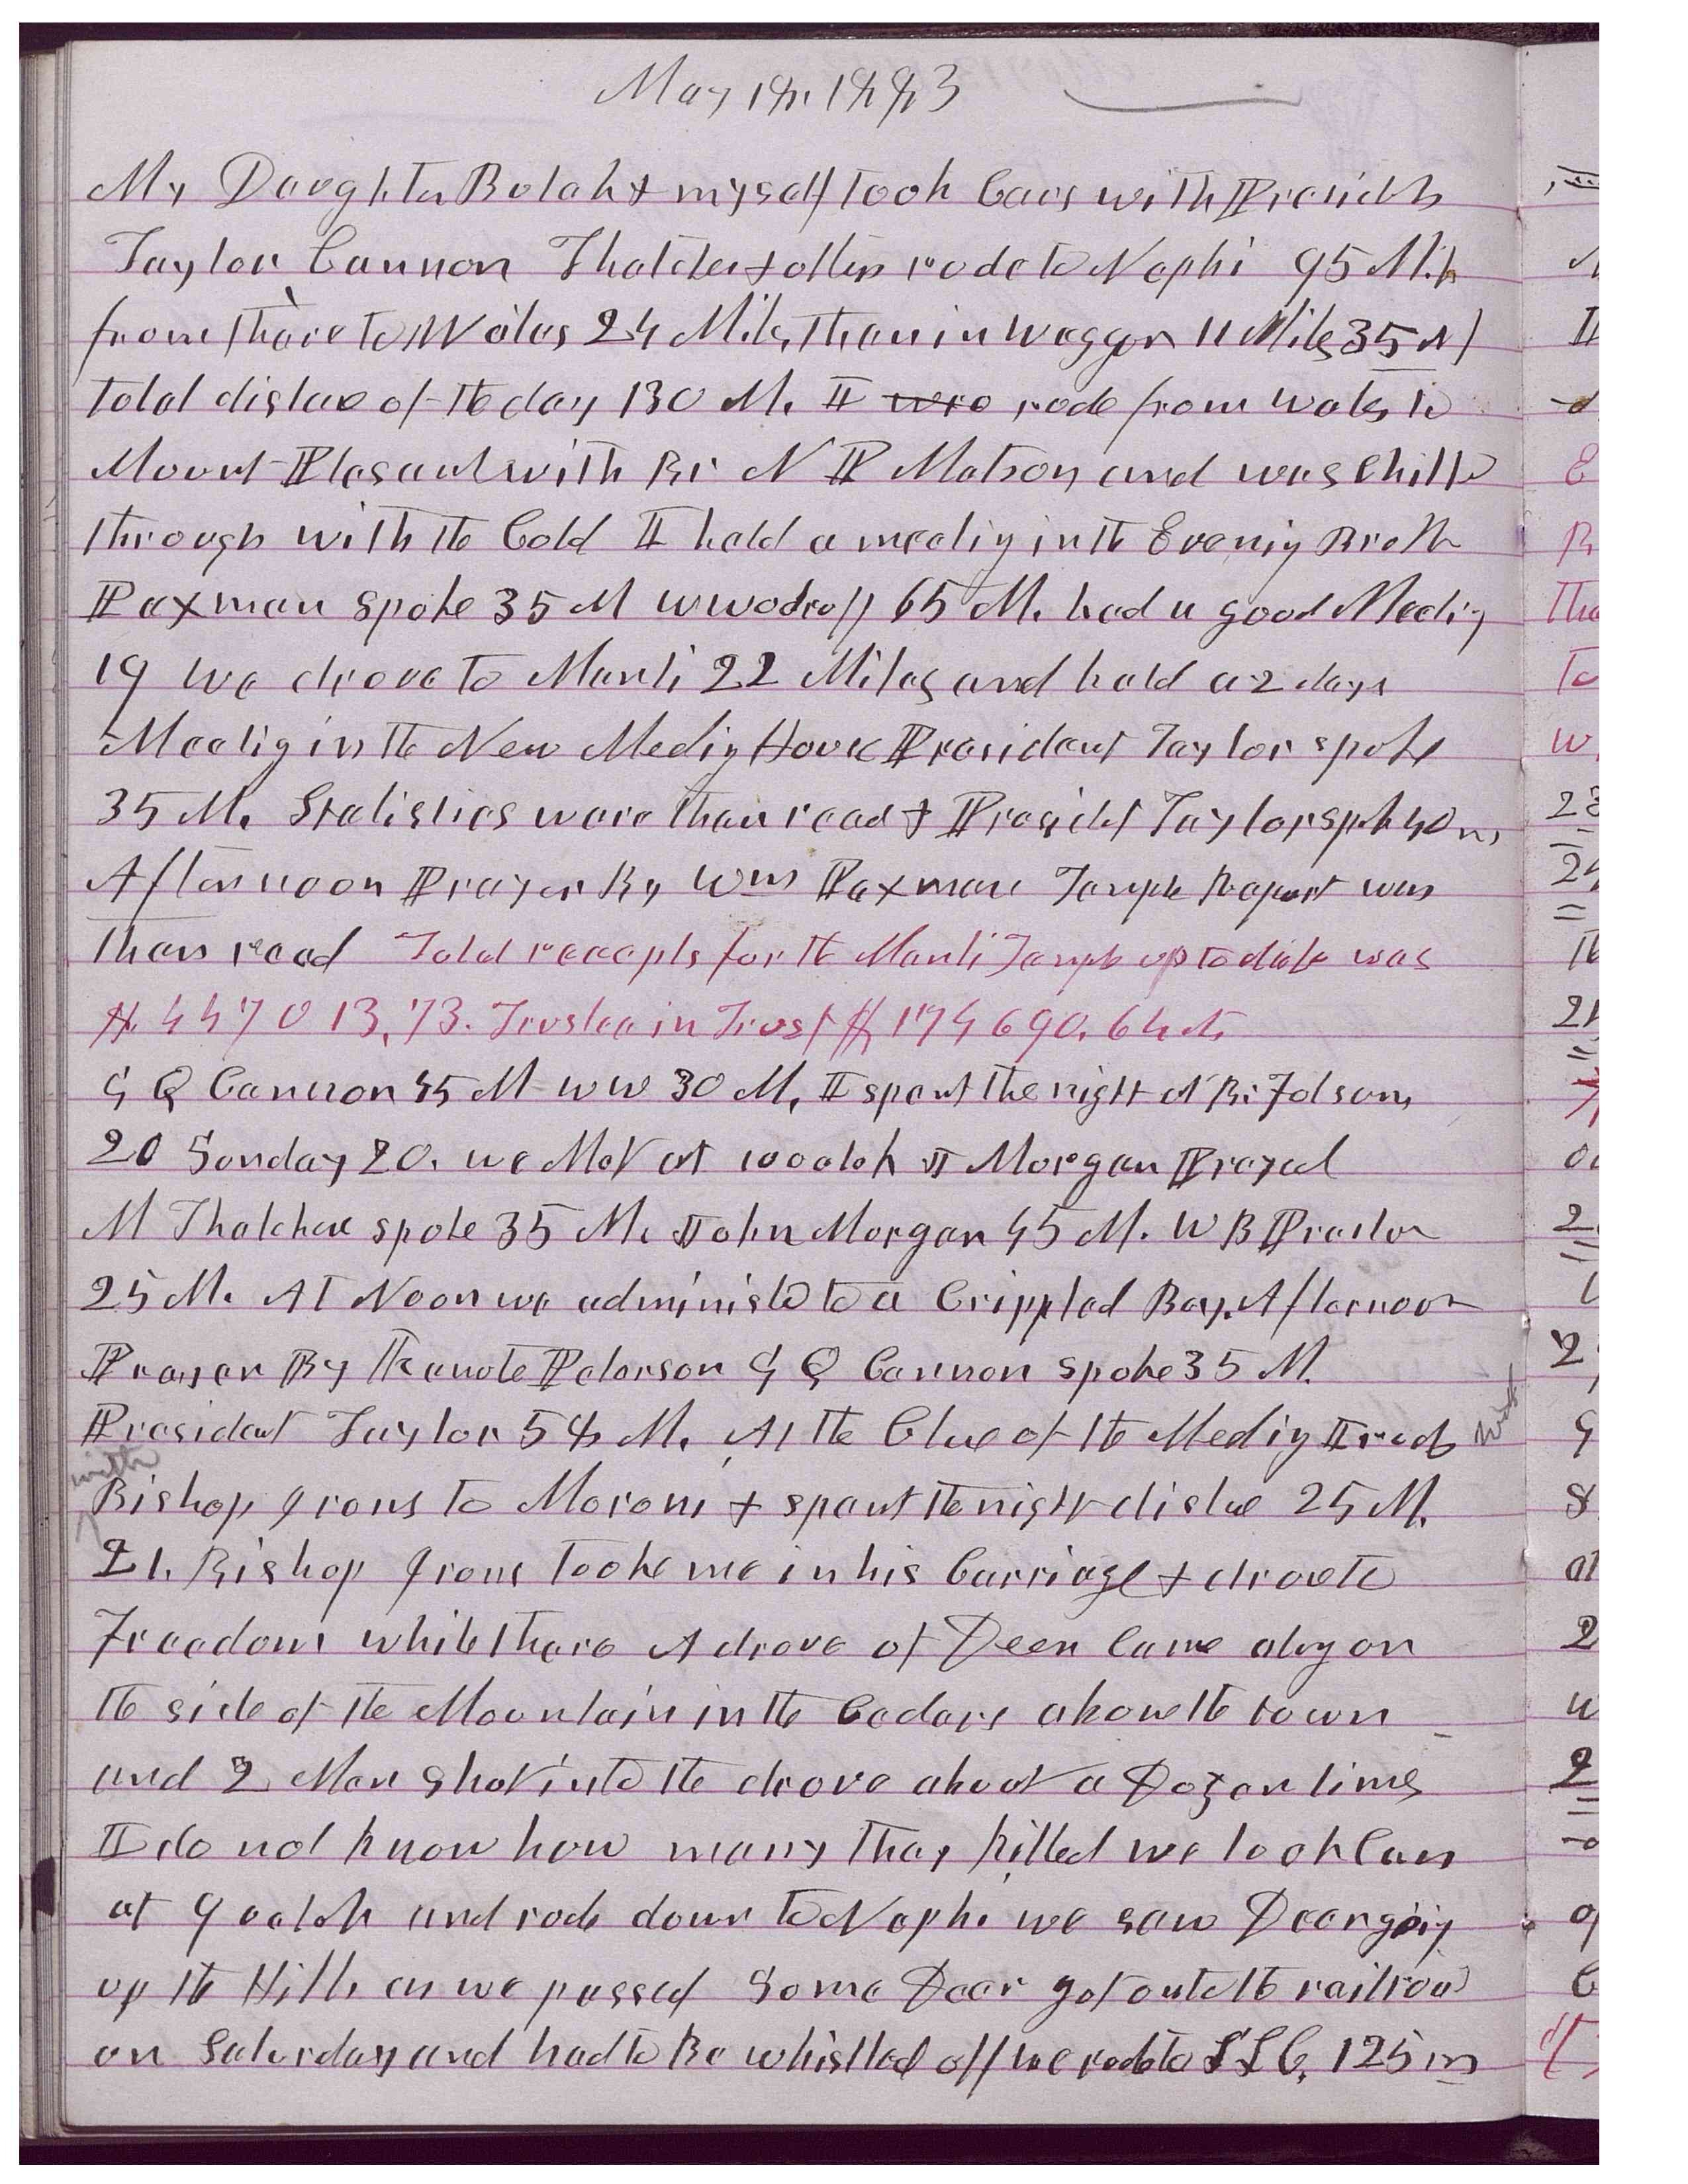 May 18, 1883
My Daughter Bulah & myself took Cars with Presidets
Taylor, Cannon Thatcher & others rode to Nephi 95 Mils
from thare to Wales 24 Miles, then in waggon 11 Miles 35 M
total distace of the day 130 M. I wro rode from wales to
Mount Plesant with Br N P Matson and was Chilled
through with the Cold I held a meetig in the Evenig Broth
Paxman spoke 35 M W Wodruff 65 M. had a good Meetig
19 we drove to Manti 22 Miles and held a 2 days
Meetig in the New Meetig House President Taylor spoke
35 M. Statistics were then read & Presidet Taylor spoke 40 m,
Afternoon Prayer By Wm Paxman Temple Report was
then read Total recepts for the Manti Temple up to date was
$447013,73. Trustee in Trust $174690.64 cts
G Q Cannon 45 M W W 30 M, I spent the night at Br Folsom,
20 Sunday 20. we Met at 10 oclok J Morgan Prayed
M Thatcher spoke 35 M. John Morgan 45 M. W B Preston
25 M. At Noon we administed to a Crippled Boy. Afternoon
Prayer By Kanute Peterson G Q Cannon spoke 35 M.
President Taylor 58 M. At the Close of the Meetig I rode with
with
Bishop Irons to Moroni & spent the night distae 25 M.
21. Bishop Irons tooke me in his Carriage & drove to
Freedom while thare A drove of Deer Came alog on
the side of the Mountain in the Cedars above the town
and 2 Men shot into the drove about a Dozen times
I do not know how many they killed we took Cars
at 9 oclok and rode down to Nephi we saw Deer goig
up the Hills as we passed Some Deer got onto the railroad
on Saturday and had to Be whistled off we rode to S L C, 125 m